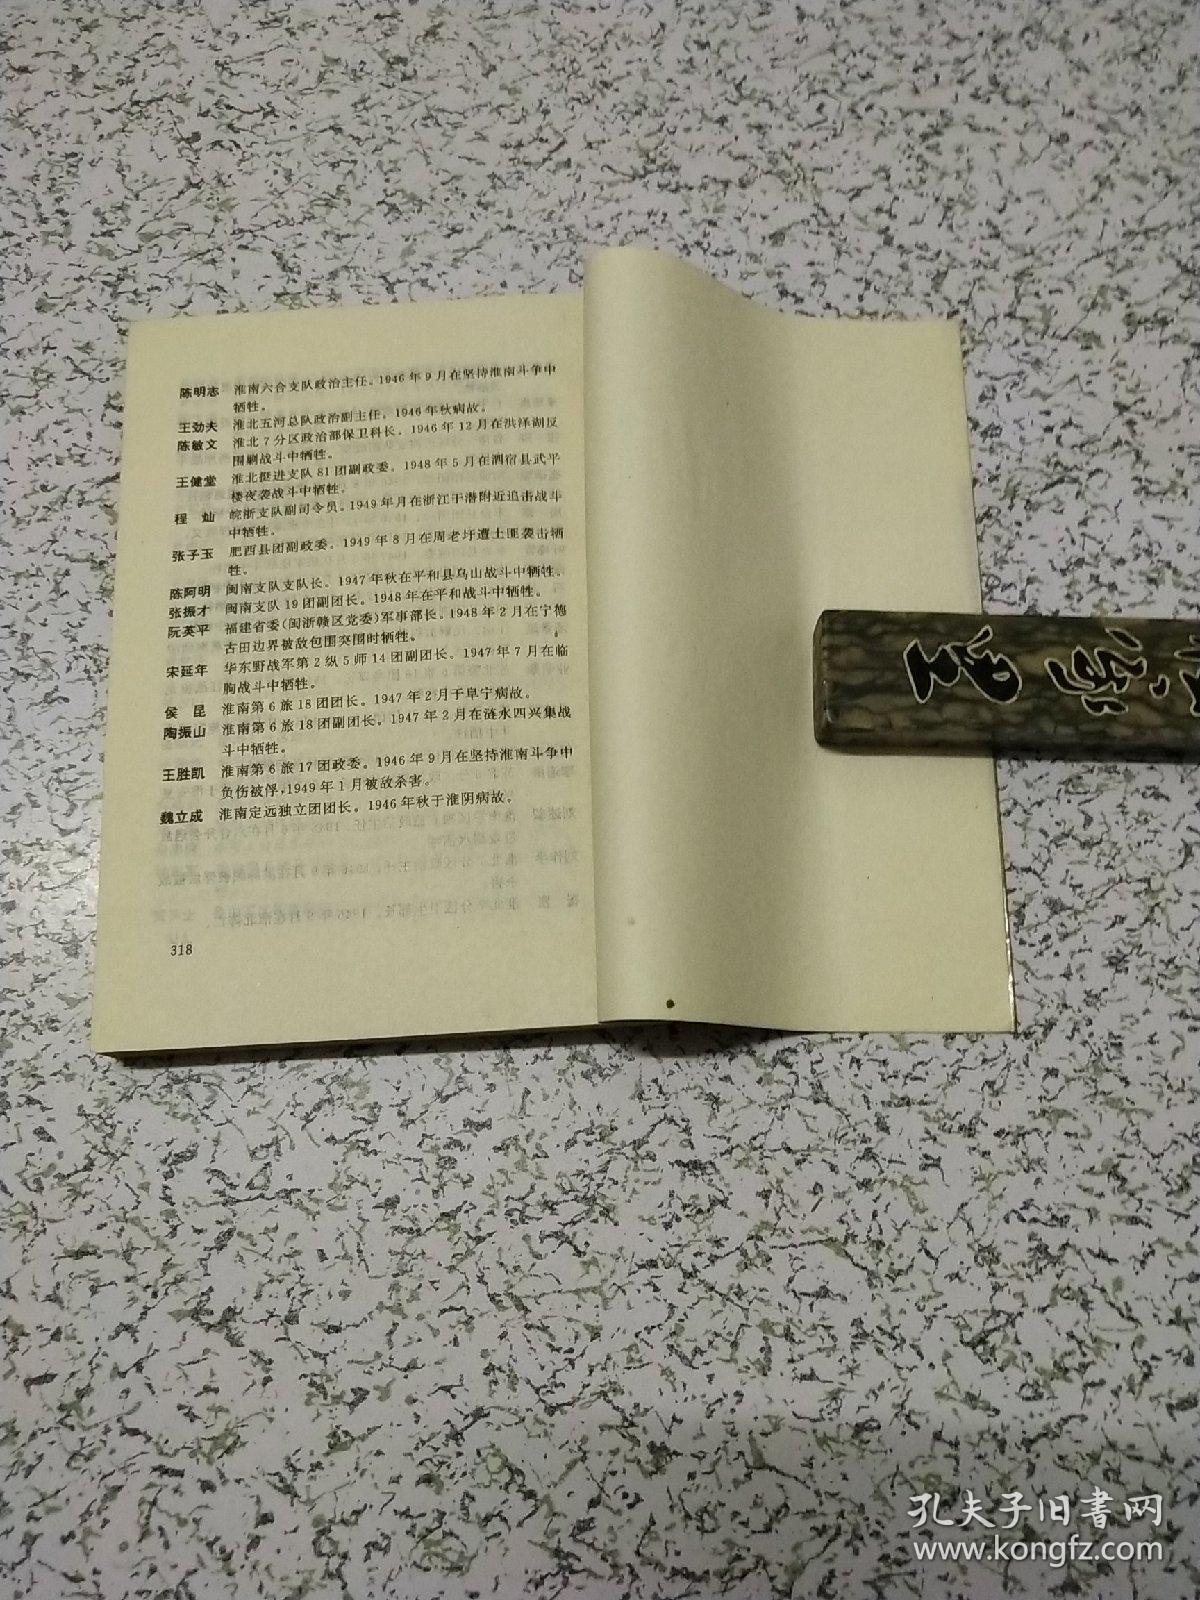 陈明志 淮南六合支队政治主任。1946年9月在坚持淮南斗争中
牺牲。
王劲夫 淮北五河总队政治副主任。1946年秋病故。
陈敏文 淮北7分区政治部保卫科长。1946年12月在洪泽湖反
围剿战斗中牺牲。
王健堂 淮北挺进支队81团副政委。1948年5月在泗宿县武平
楼夜袭战斗中牺牲。
程 灿 皖浙支队副司令员。1949年月在浙江于潜附近追击战斗
中牺牲。
张子玉 肥西县团副政委。1949年8月在周老圩遭土匪袭击牺
牲。
陈阿明 闽南支队支队长。1947年秋在平和县乌山战斗中牺牲。
张振才 闽南支队19团副团长。1948年在平和战斗中牺牲。
阮英平 福建省委(闽浙赣区党委)军事部长。1948年2月在宁德
古田边界被敌包围突围时牺牲。
宋延年 华东野战军第2纵5师14团副团长。1947年7月在临
朐战斗中牺牲。
侯 昆 淮南第6旅18团团长。1947年2月于阜宁病故。
陶振山 淮南第6旅18团副团长。1947年2月在涟水四兴集战
斗中牺牲。
王胜凯 淮南第6旅17团政委。1946年9月在坚持淮南斗争中
负伤被俘,1949年1月被敌杀害。
魏立成 淮南定远独立团团长。1946年秋于淮阴病故。
318
孔夫子旧書网
www.kongfz.com